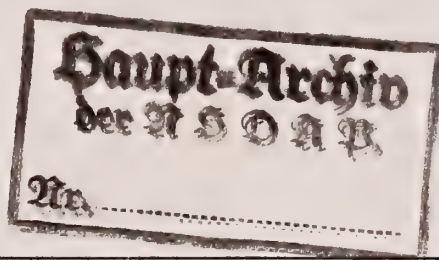 Haupt-Archiv
der NSDAP.
Nr. ........................................